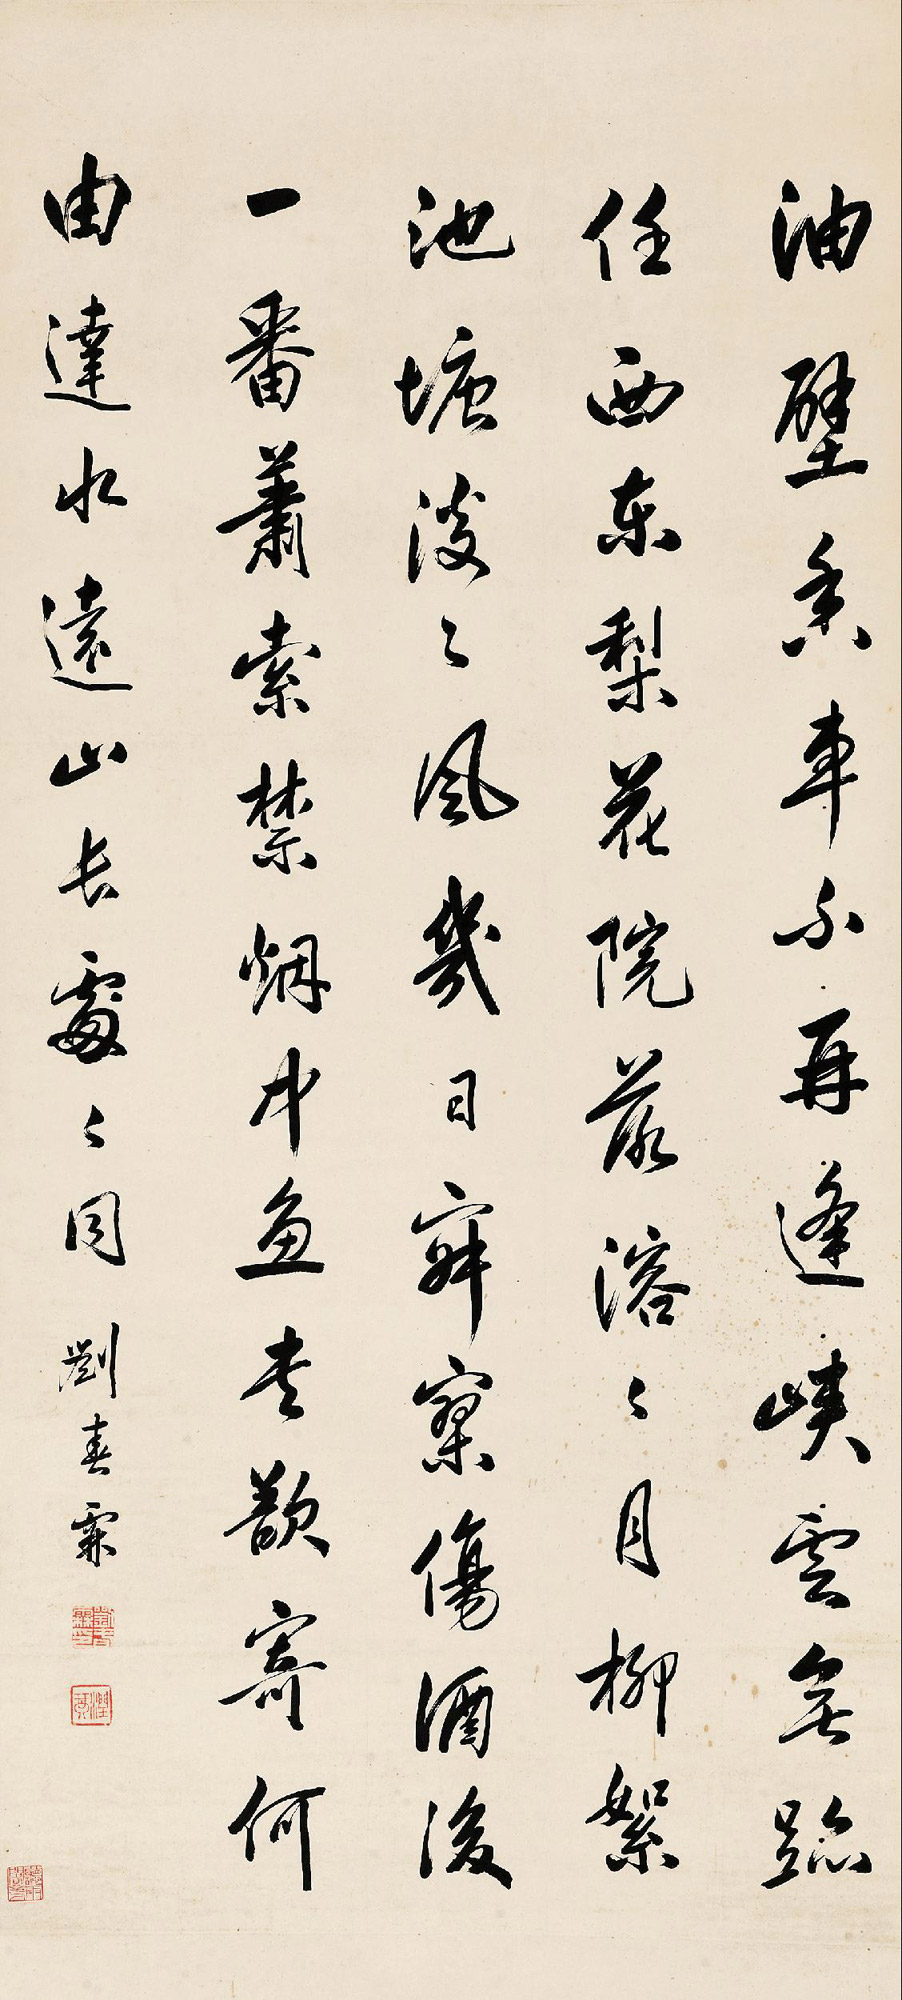 油壁香車不再逢峽雲無跡
任西東梨花院落溶〻月柳絮
池塘淡〻風幾日寂寥傷酒後
一番蕭索禁烟中魚書欲寄何
由達水遠山長處〻同
劉春霖